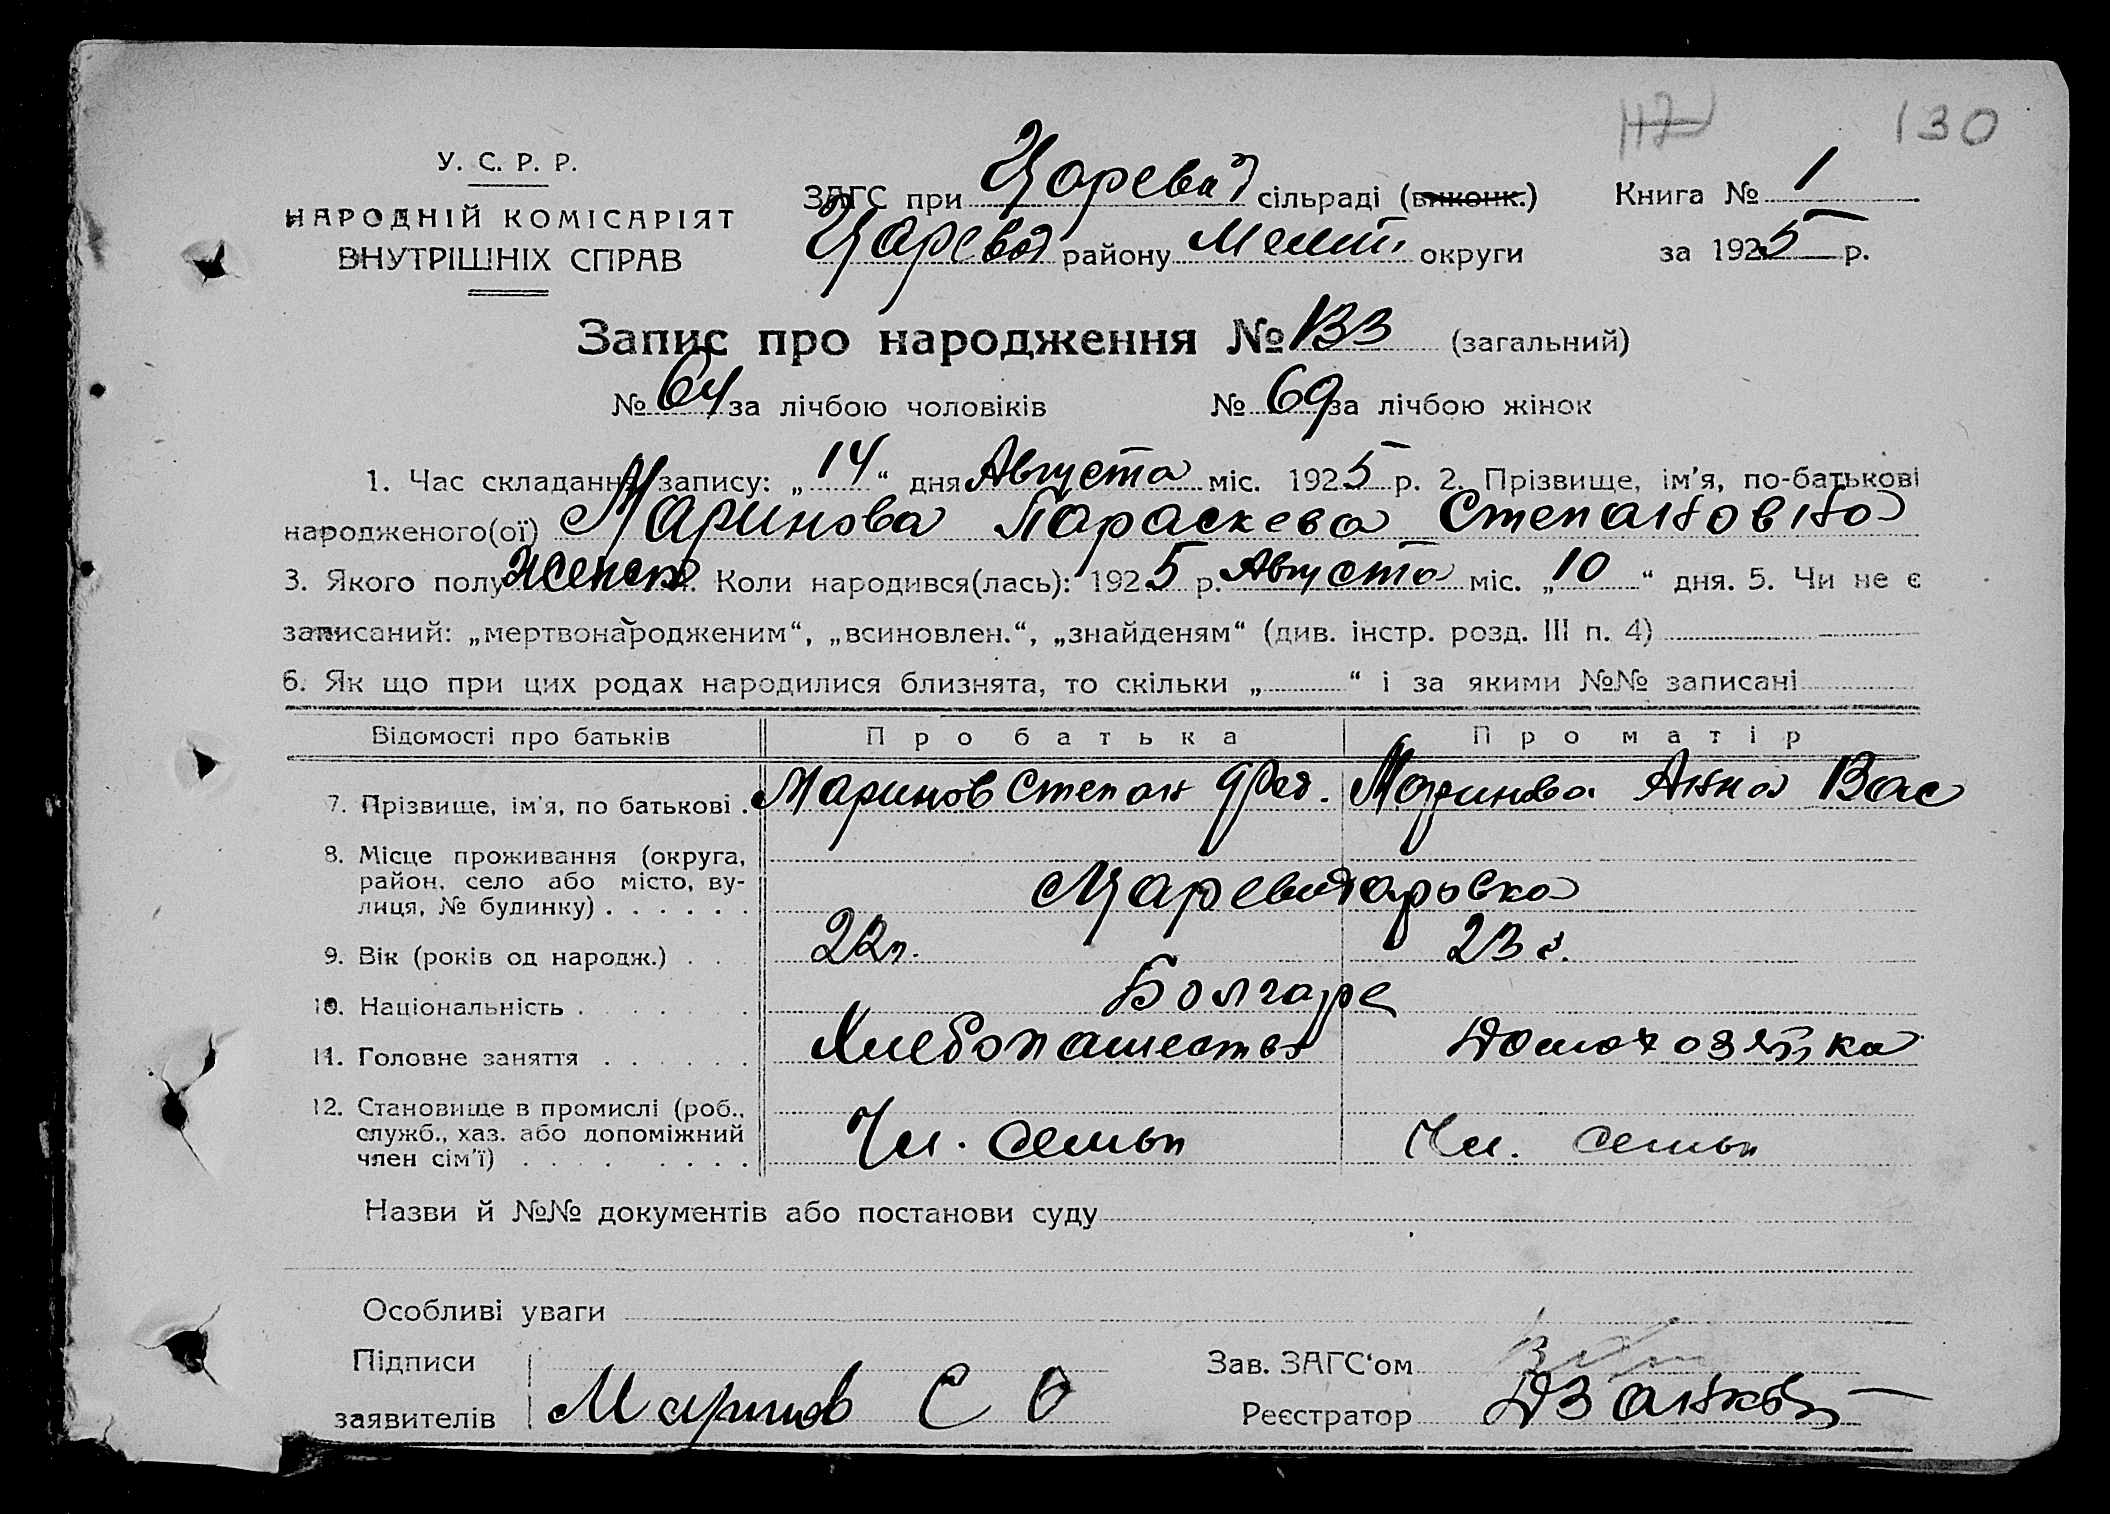 130
У. С. Р. Р.
НАРОДНІЙ КОМІСАРІЯТ
ВНУТРІШНІХ СПРАВ
ЗАГС при Царевод сільраді (виконк.) Книга № 1
Царевод району Мелит. округи за 1925 р.
Запис про народження № 133 (загальний)
№ 64 за лічбою чоловіків № 69 за лічбою жінок
1. Час складання запису: „14“ дня Августа міс. 1925 р. 2. Прізвище, ім'я, по-батькові
народженого(ої) Маринова Параскева Степановна
3. Якого полу Женск 4. Коли народився(лась): 1925 р. Августа міс. „10“ дня. 5. Чи не є
записаний: „мертвонародженим“, „всиновлен.“, „знайденям“ (див. інстр. розд. III п. 4)
6. Як що при цих родах народилися близнята, то скільки „ “ і за якими №№ записані
Відомості про батьків Про батька Про матір
7. Прізвище, ім'я, по батькові . Маринов Степан Фед. Маринова Анна Вас
8. Місце проживання (округа,
район, село або місто, ву-
лиця, № будинку) . . . . . .
9. Вік (років од народж.) . . . 22 л. 23 г.
10. Національність . . . . . . . Болгаре
11. Головне заняття . . . . . . Хлебопашество Домохозяйка
12. Становище в промислі (роб.,
служб., хаз. або допоміжний
член сім'ї) . . . . . . . . Чл. семьи Чл. семьи
Назви й №№ документів або постанови суду
Особливі уваги
Підписи Зав. ЗАГС'ом
заявителів Маринов С Реєстратор